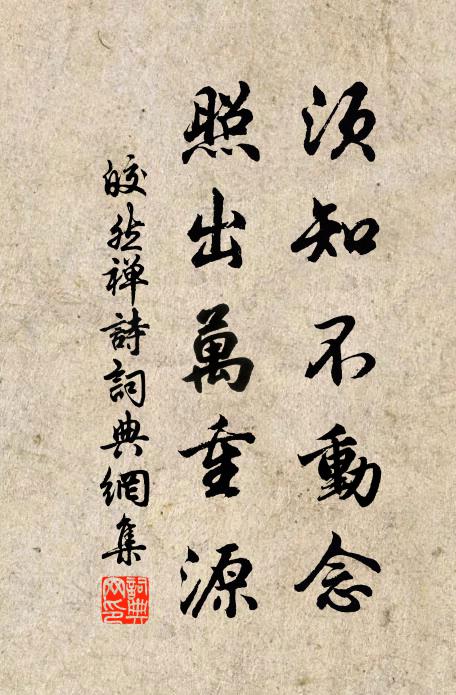 須知不動念
照出萬重源
皎然禅詩詞典網集
詞典网印